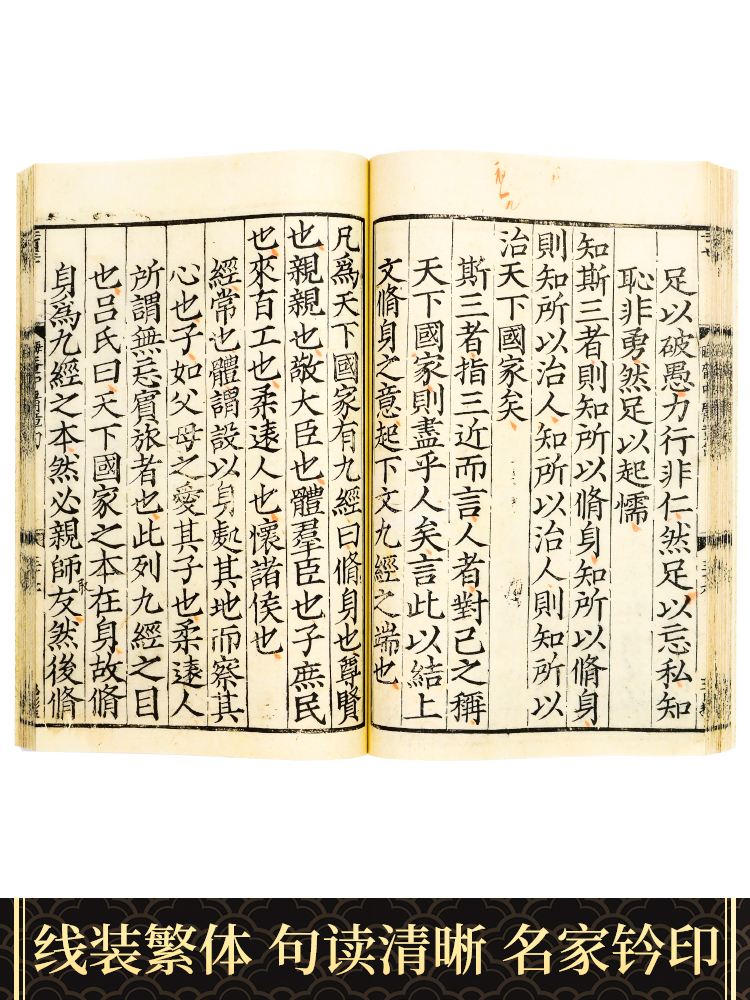 足以破愚力行非仁然足以忘私知
恥非勇然足以起懦
知斯三者則知所以脩身知所以脩身
則知所以治人知所以治人則知所以
治天下國家矣
斯三者指三近而言人者對己之稱
天下國家則盡乎人矣言此以結上
文脩身之意起下文九經之端也
凡爲天下國家有九經曰脩身也尊賢
也親親也敬大臣也體羣臣也子庶民
也來百工也柔遠人也懷諸侯也
經常也體謂設以身處其地而察其
心也子如父母之愛其子也柔遠人
所謂無忘賓旅者也此列九經之目
也呂氏曰天下國家之本在身故脩
身爲九經之本然必親師友然後脩
线装繁体 句读清晰 名家钤印